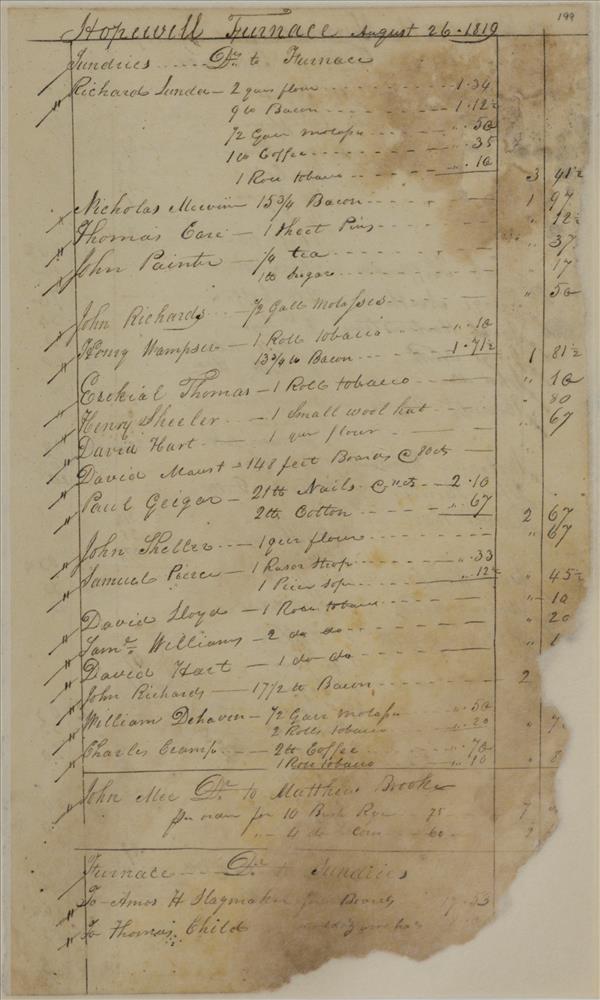 199
Hopewell Furnace August 26. 1819
Sundries Dr. to Furnace
Richard Lunda - 2 quer flour 1.34
9 lb Bacon 1.12½
½ Gall molases " .50
1 lb Coffee " .35
1 Role tobacco " .10 3 41½
Nicholas - 15¾ Bacon 1 97
Thomas Eare - 1 Sheet Pins " 12½
John Painter - ¼ tea " 37
1 lb Sugar " 17
John Richards - ½ Gall Molasses " 50
Henry Wampser - 1 Roll tobacco " .10
13¾ lb Bacon 1.71½ 1 81½
Ezekial Thomas - 1 Roll tobacco " 10
Henry Sheeler - 1 Small wool hat " 80
David Hart - 1 quer flour " 67
David Maust - 148 feet Boards @ 80 cts
Paul Geiger - 21 lb Nails @ 2.10
2 lb Cotton " .67 2 67
John Sheller - 1 quer flour " 67
Samuel Pierce - 1 Rasor Strop " .33
1 Piece sope " .12½ " 45½
David Lloyd - 1 Role tobacco " 10
Saml. Williams - 2 do do " 20
David Hart - 1 do do " 1
John Richards - 17½ lb Bacon 2
William Dehaven - ½ Gall molases " .50
2 Rolls tobacco " .20 " 7
Charles Cramp - 2 lb Coffee " .70
1 Role tobacco " .10 " 8
John Mee Dr. to Matthew Brooke
Per order for 10 Bush Rye 75 7
" 4 do Corn 60 2
Furnace Dr. to Sundries
To Amos H Slaymaker for Boards 17.33
To Thomas Child